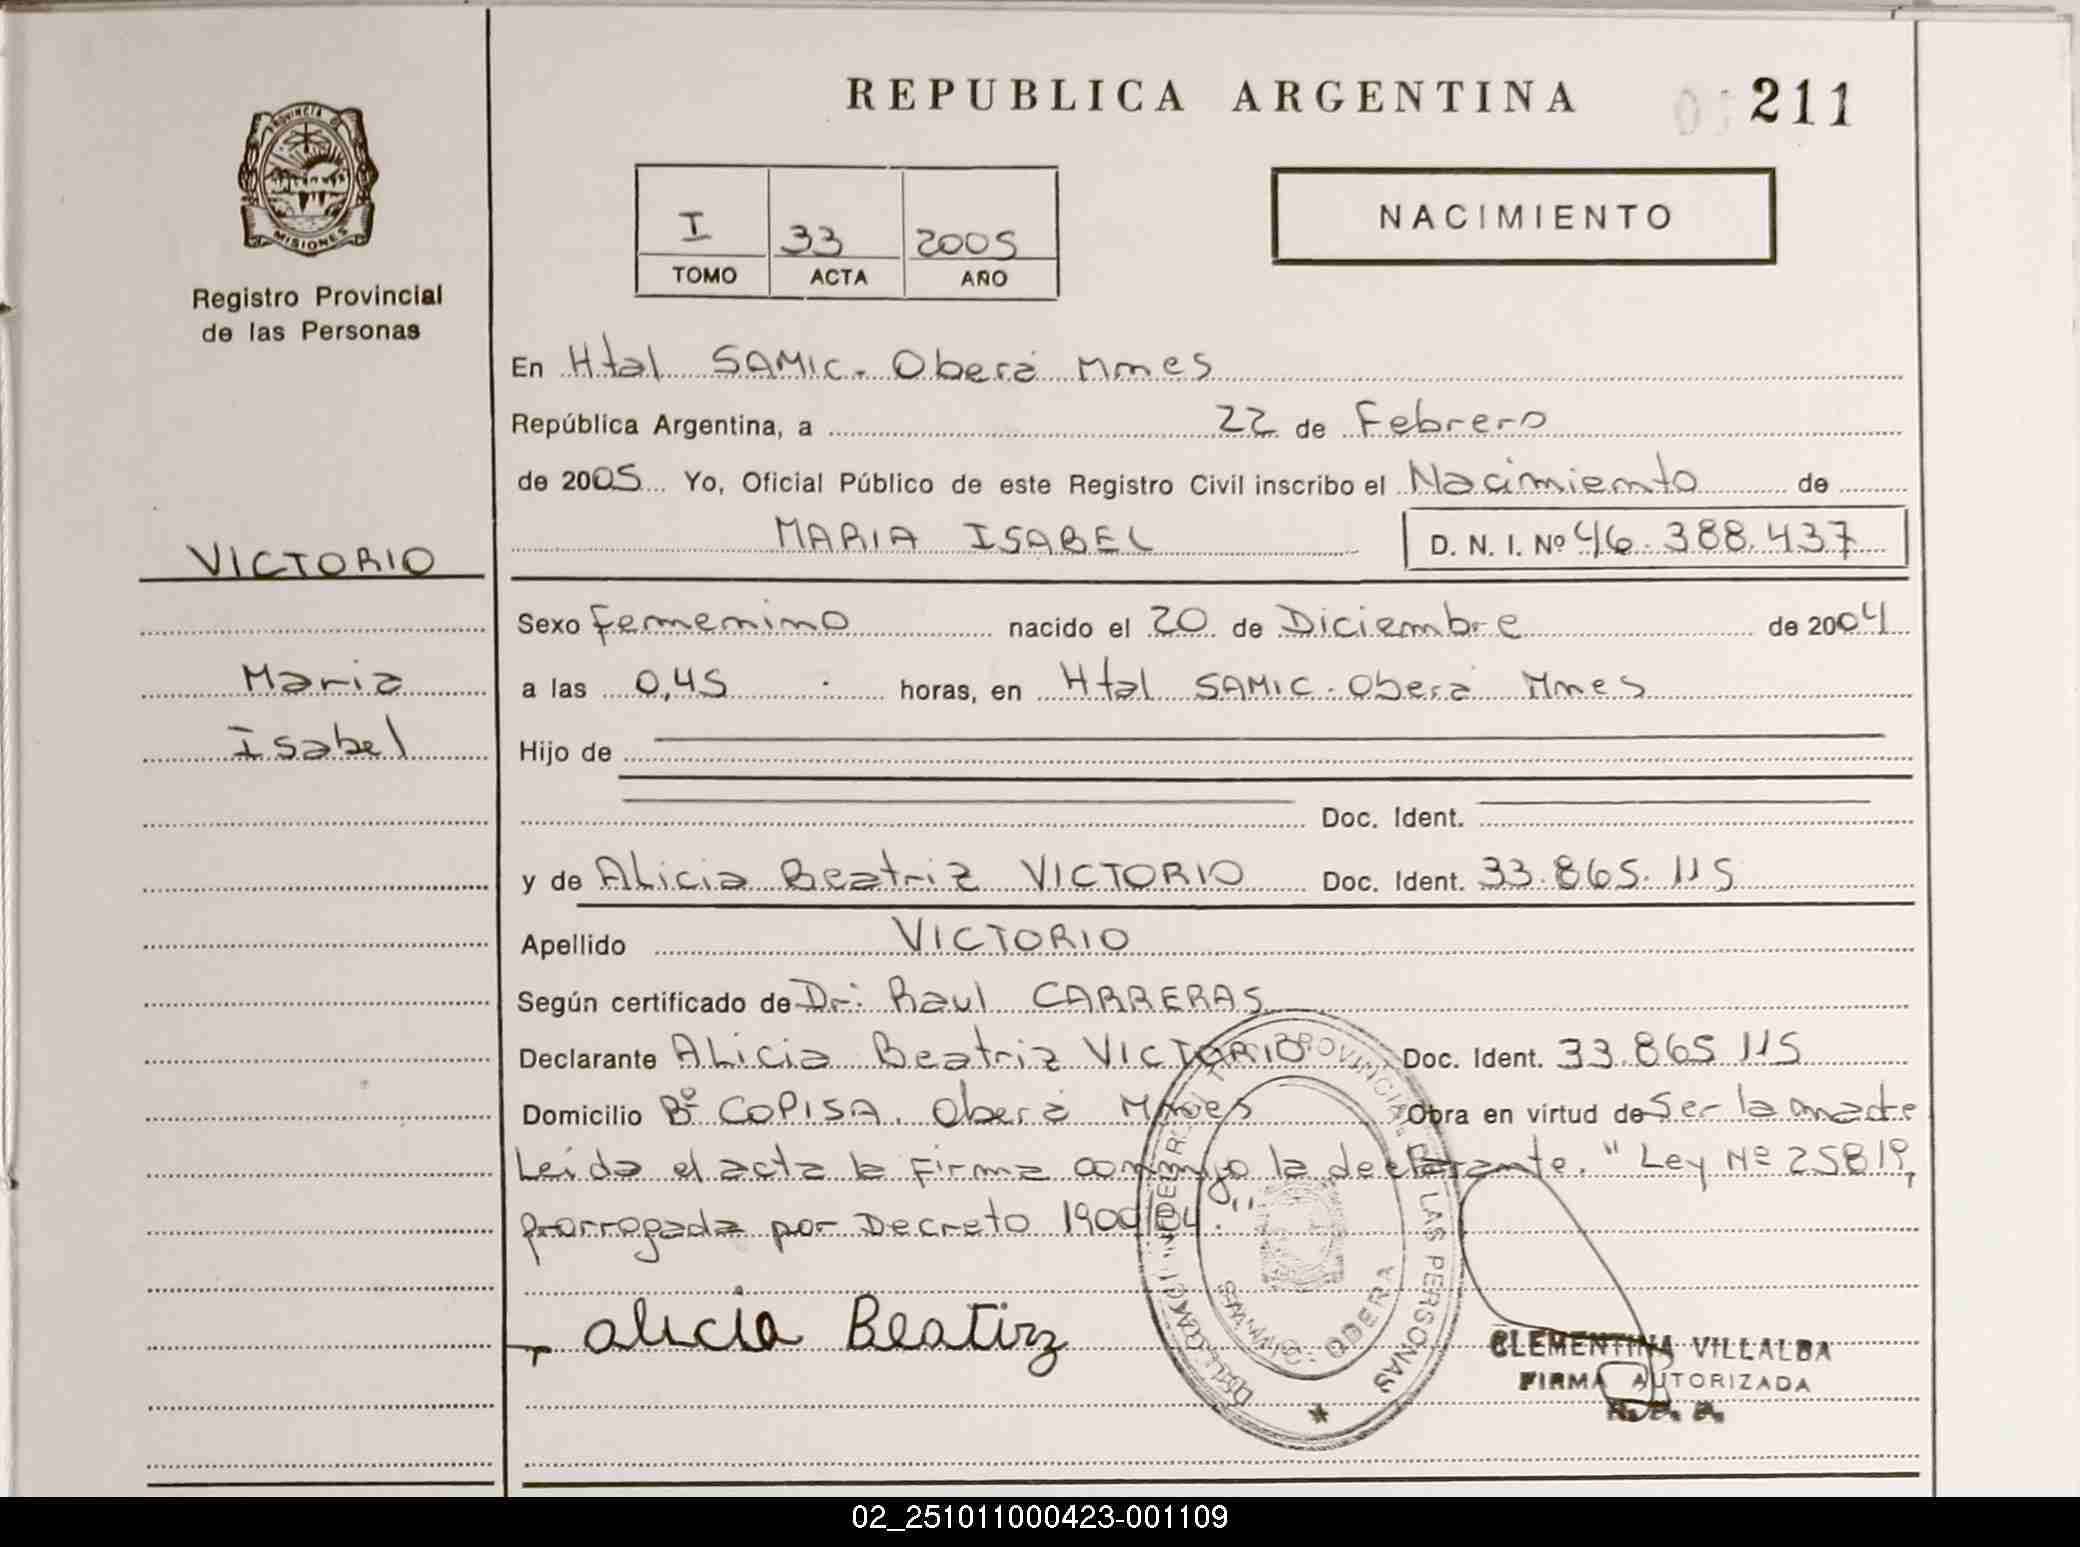 REPUBLICA ARGENTINA
211
PROVINCIA DE
MISIONES
Registro Provincial
de las Personas
I 33 2005
TOMO ACTA AÑO
NACIMIENTO
En Htal SAMIC. Oberá Mnes
República Argentina, a 22 de Febrero
de 2005 Yo, Oficial Público de este Registro Civil inscribo el Nacimiento de
MARIA ISABEL D. N. I. Nº 46.388.437
VICTORIO
Maria
Isabel
Sexo Femenino nacido el 20 de Diciembre de 2004
a las 0,45 horas, en Htal SAMIC. Oberá Mnes
Hijo de
Doc. Ident.
y de Alicia Beatriz VICTORIO Doc. Ident. 33.865.115
Apellido VICTORIO
Según certificado de Dr: Raul CARRERAS
Declarante Alicia Beatriz VICTORIO Doc. Ident. 33.865.115
Domicilio Bº COPISA. Oberá Mnes Obra en virtud de Ser la madre
Leída el acta la firma conmigo la declarante. "Ley Nº 25819,
prorrogada por Decreto 1900/04."
alicia Beatirz
PROVINCIAL DE LAS PERSONAS
CLEMENTINA VILLALBA
FIRMA AUTORIZADA
02_251011000423-001109